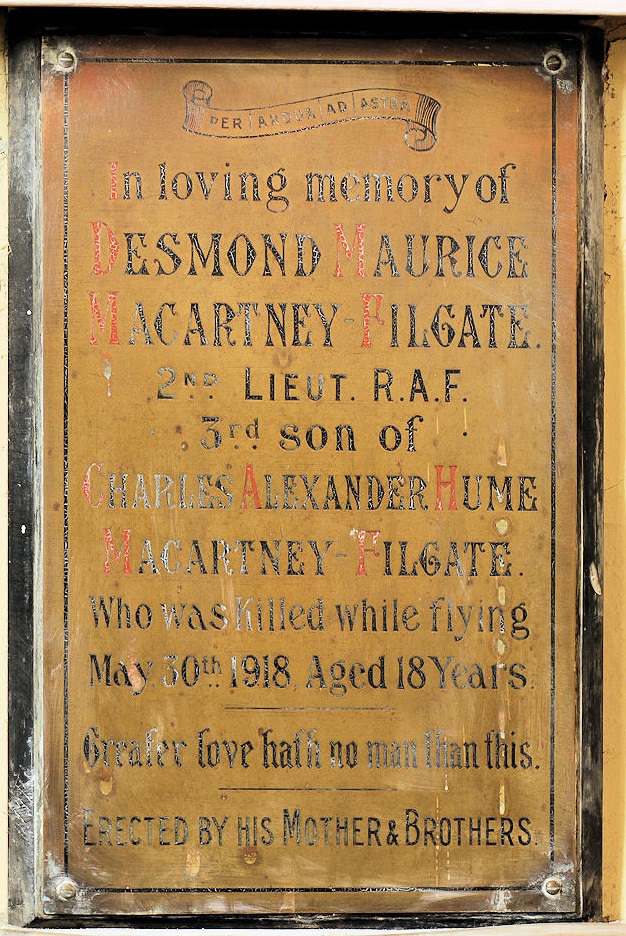 PER ARDUA AD ASTRA
In loving memory of
DESMOND MAURICE
MACARTNEY-FILGATE.
2ND LIEUT. R.A.F.
3rd son of
CHARLES ALEXANDER HUME
MACARTNEY-FILGATE.
Who was Killed while flying
May 30th 1918, Aged 18 Years.
Greater love hath no man than this.
ERECTED BY HIS MOTHER & BROTHERS.